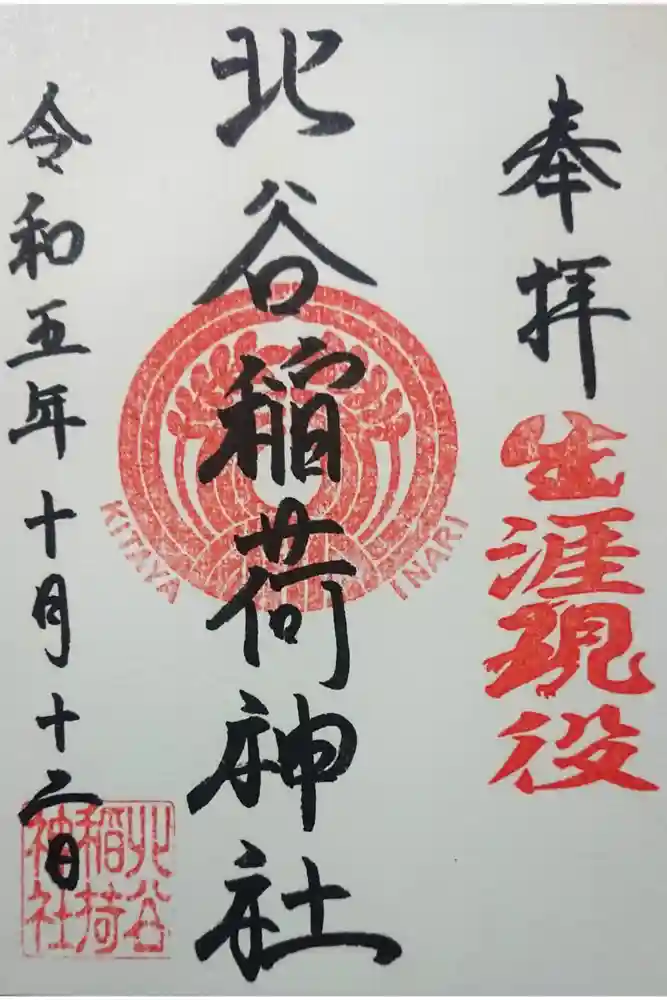 奉拝
生涯現役
北谷稲荷神社
KITAYA INARI
令和五年十月十二日
北谷
稲荷
神社